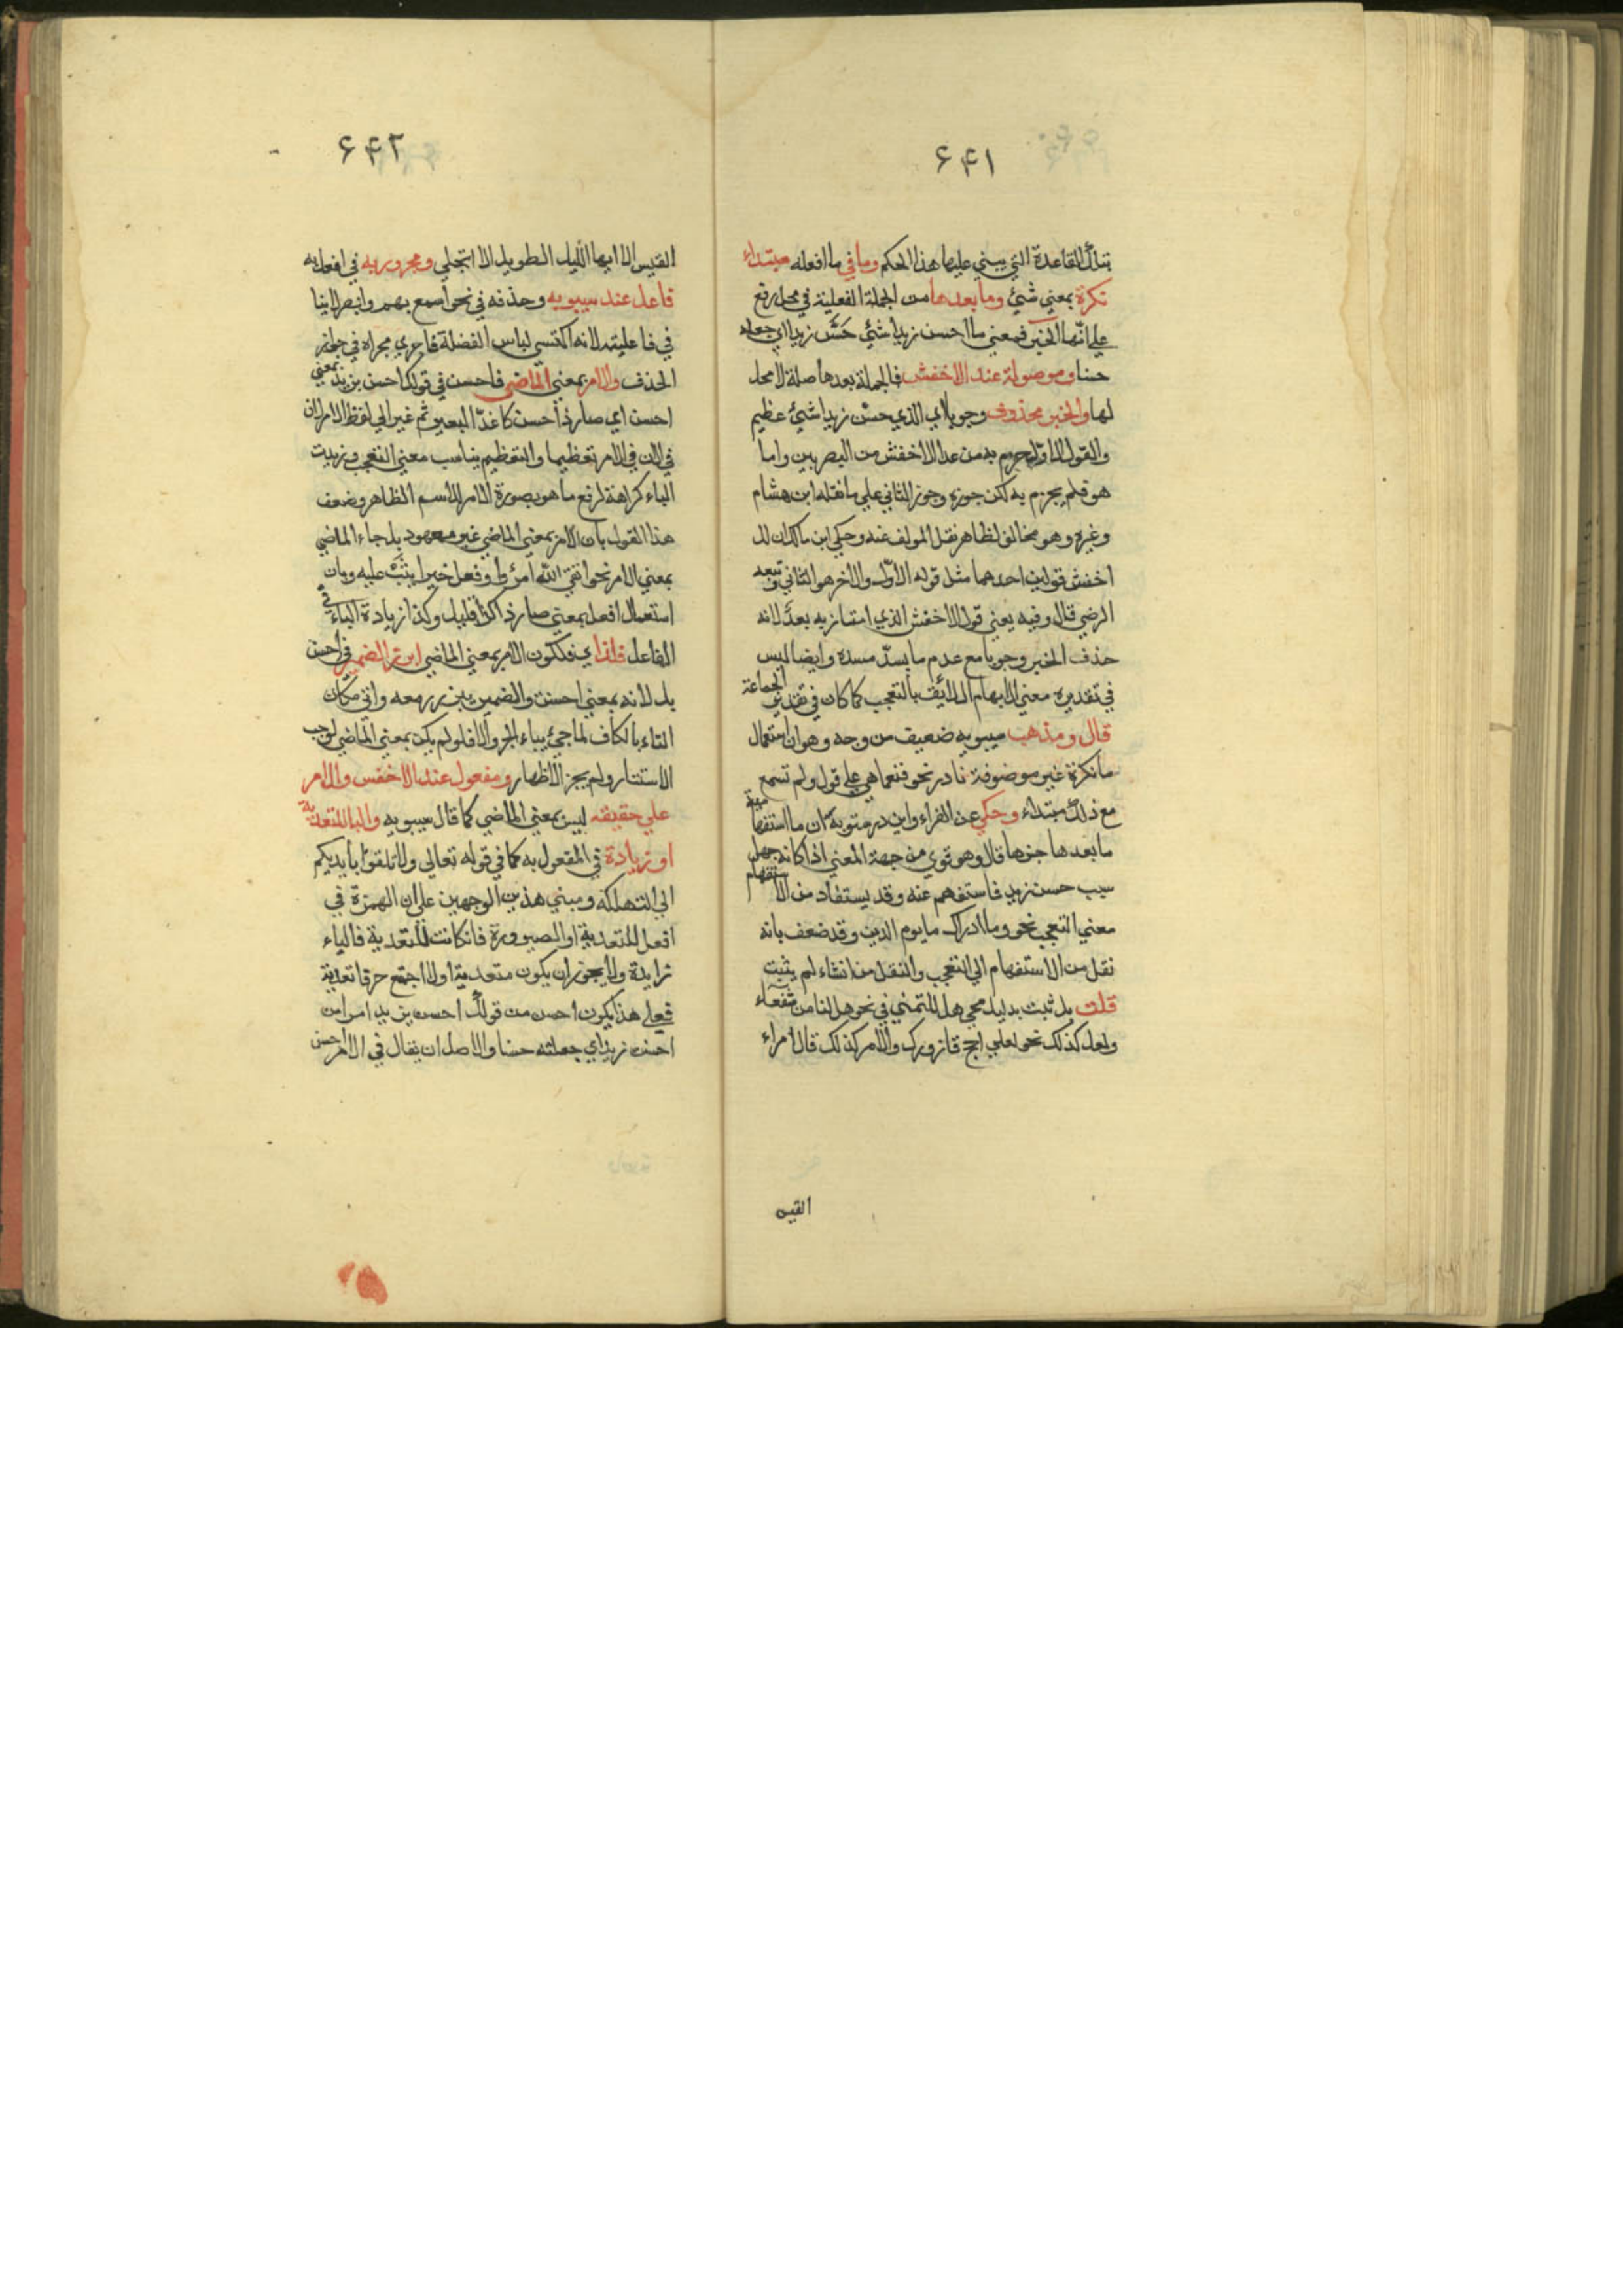 ۶۴۱
بتلك القاعدة التي يبني عليها هذا الحكم وما في ما افعله مبتداء
نكرة بمعني شئ وما بعدها من الجملة الفعلية في محل رفع
علي انها الخبر فمعني ما احسن زيدا شئ حسّن زيدا اي جعله
حسنا وموصولة عند الاخفش فالجملة بعدها صلة لا محل
لها والخبر محذوف وجوبا اي الذي حسّن زيدا شئ عظيم
والقول الاول جزم به من عدا الاخفش من البصريين واما
هو فلم يجزم به لكن جوزه وجوز الثاني علي ما نقله ابن هشام
وغيره وهو مخالف لظاهر نقل المولف عنه وحكي ابن مالك ان لل
اخفش قولين احدهما مثل قوله الاول والاخر هو الثاني وتبعه
الرضي قال وفيه يعني قول الاخفش الذي امتاز به بعد لانه
حذف الخبر وجوبا مع عدم ما يسدّ مسده وايضا ليس
في تقديره معني الابهام اللائق بالتعجب كما كان في تقدير الجماعة
قال ومذهب سيبويه ضعيف من وجه وهو ان استعمال
ما نكرة غير موصوفة نادر نحو فنعما هي علي قول ولم تسمع
مع ذلك مبتداء وحكي عن الفراء وابن درستويه ان ما استفهامية
ما بعدها خبرها قال وهو قوي من جهة المعني اذا كانه جهل
سبب حسن زيد فاستفهم عنه وقد يستفاد من الاستفهام
معني التعجب نحو وما ادراك ما يوم الدين وقد ضعف بانه
نقل من الاستفهام الي التعجب والنقل من انشاء لم يثبت
قلت بل ثبت بدليل مجي هل للتمني في نحو هل لنا من شفعاء
ولعل كذلك نحو لعلي احج فازورك والامر كذلك قال امراء
القيس
۶۴۲
القيس الا ايها الليل الطويل الا انجلي ومجرور به في افعل به
فاعل عند سيبويه وحذفه في نحو اسمع بهم وابصر لا ينا
في فاعليته لانه اكتسي لباس الفضلة فاجري مجراه في جواز
الحذف والامر بمعني الماضي فاحسن في قولك احسن بزيد بمعني
احسن اي صار ذا حسن كاغدّ البعير ثم غير الي لفظ الامر لان
في لان في الامر تعظيما والتعظيم يناسب معني التعجب وزيدت
الباء كراهة لرفع ما هو بصورة الامر للاسم الظاهر وضعف
هذا القول بان الامر بمعني الماضي غير معهود بل جاء الماضي
بمعني الامر نحو اتقي الله امرؤ وفعل خيرا يثب عليه وبان
استعمال افعل بمعني صار ذا كذا قليل وكذا زيادة الباء في
الفاعل فلذا اي فلكون الامر بمعني الماضي ابرز الضمير في احسن
بك لانه بمعني احسنت والضمير يبرز معه واتي مكان
التاء بالكاف لما جئ بباء الجر والا فلو لم يكن بمعني الماضي لوجب
الاستتار ولم يجز الاظهار ومفعول عند الاخفس والامر
علي حقيقته ليس بمعني الماضي كما قال سيبويه والبا للتعدية
او زيادة في المفعول به كما في قوله تعالي ولا تلقوا بايديكم
الي التهلكة ومبني هذين الوجهين علي ان الهمزة في
افعل للتعدية او الصيرورة فان كانت للتعدية فالباء
زايدة ولا يجوز ان يكون متعدية او لا اجتمع حرفا تعدية
فعلي هذا يكون احسن من قولك احسن بزيد امر من
احسن زيدا اي جعلته حسنا والاصل ان يقال في الامر احسن